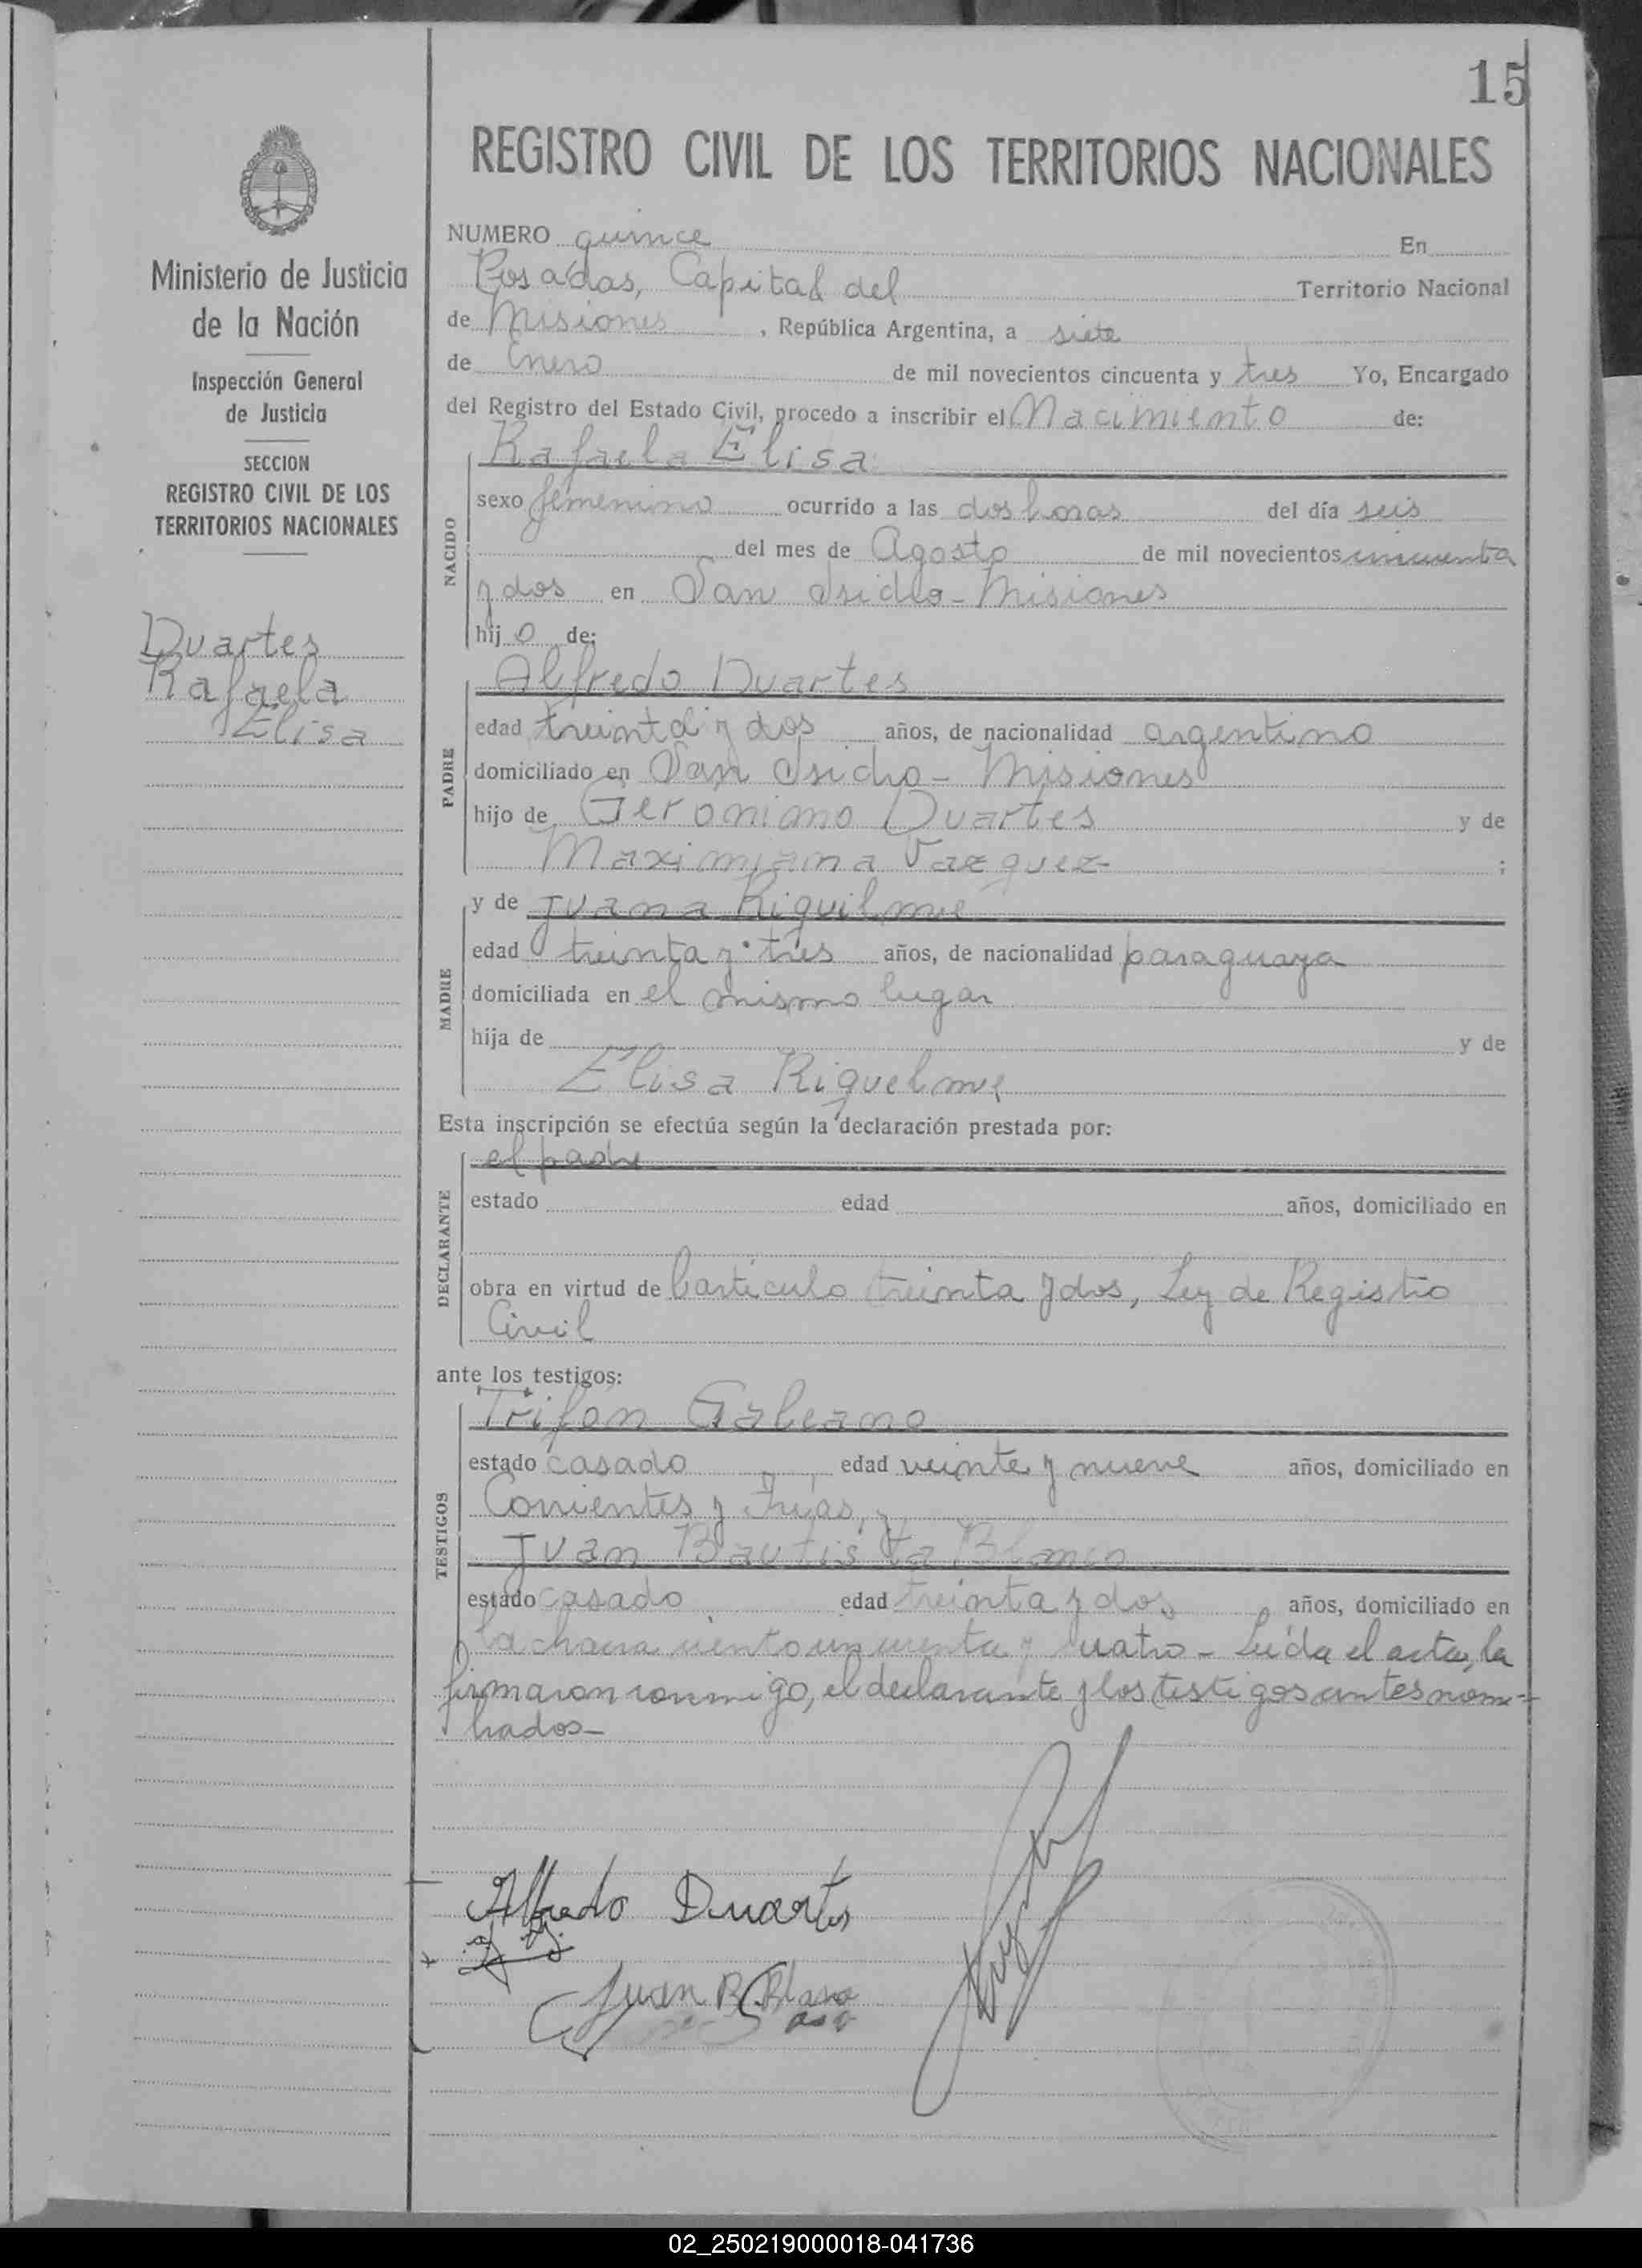 15
REGISTRO CIVIL DE LOS TERRITORIOS NACIONALES
Ministerio de Justicia
de la Nación
Inspección General
de Justicia
SECCION
REGISTRO CIVIL DE LOS
TERRITORIOS NACIONALES
Duartes
Rafaela
Elisa
NUMERO quince En
Posadas, Capital del Territorio Nacional
de Misiones , República Argentina, a siete
de Enero de mil novecientos cincuenta y tres Yo, Encargado
del Registro del Estado Civil, procedo a inscribir el Nacimiento de:
NACIDO
Rafaela Elisa
sexo femenino ocurrido a las dos horas del día seis
del mes de Agosto de mil novecientos cincuenta
y dos en San Isidro - Misiones
hij o de:
PADRE
Alfredo Duartes
edad treinta y dos años, de nacionalidad argentino
domiciliado en San Isidro - Misiones
hijo de Geronimo Duartes y de
Maximiana Vazquez ;
MADRE
y de Juana Riquilme
edad treinta y tres años, de nacionalidad paraguaya
domiciliada en el mismo lugar
hija de y de
Elisa Riquelme
Esta inscripción se efectúa según la declaración prestada por:
DECLARANTE
el padre
estado edad años, domiciliado en
obra en virtud de l'articulo treinta y dos, Ley de Registro
Civil
ante los testigos:
TESTIGOS
Trifon Galeano
estado casado edad veinte y nueve años, domiciliado en
Corrientes y Frías, y
Juan Bautista Blanco
estado casado edad treinta y dos años, domiciliado en
la chacra ciento cincuenta y cuatro - Leída el acta, la
firmaron conmigo, el declarante y los testigos antes nom-
brados -
Alfredo Duartes
Juan B. Blanco
02_250219000018-041736